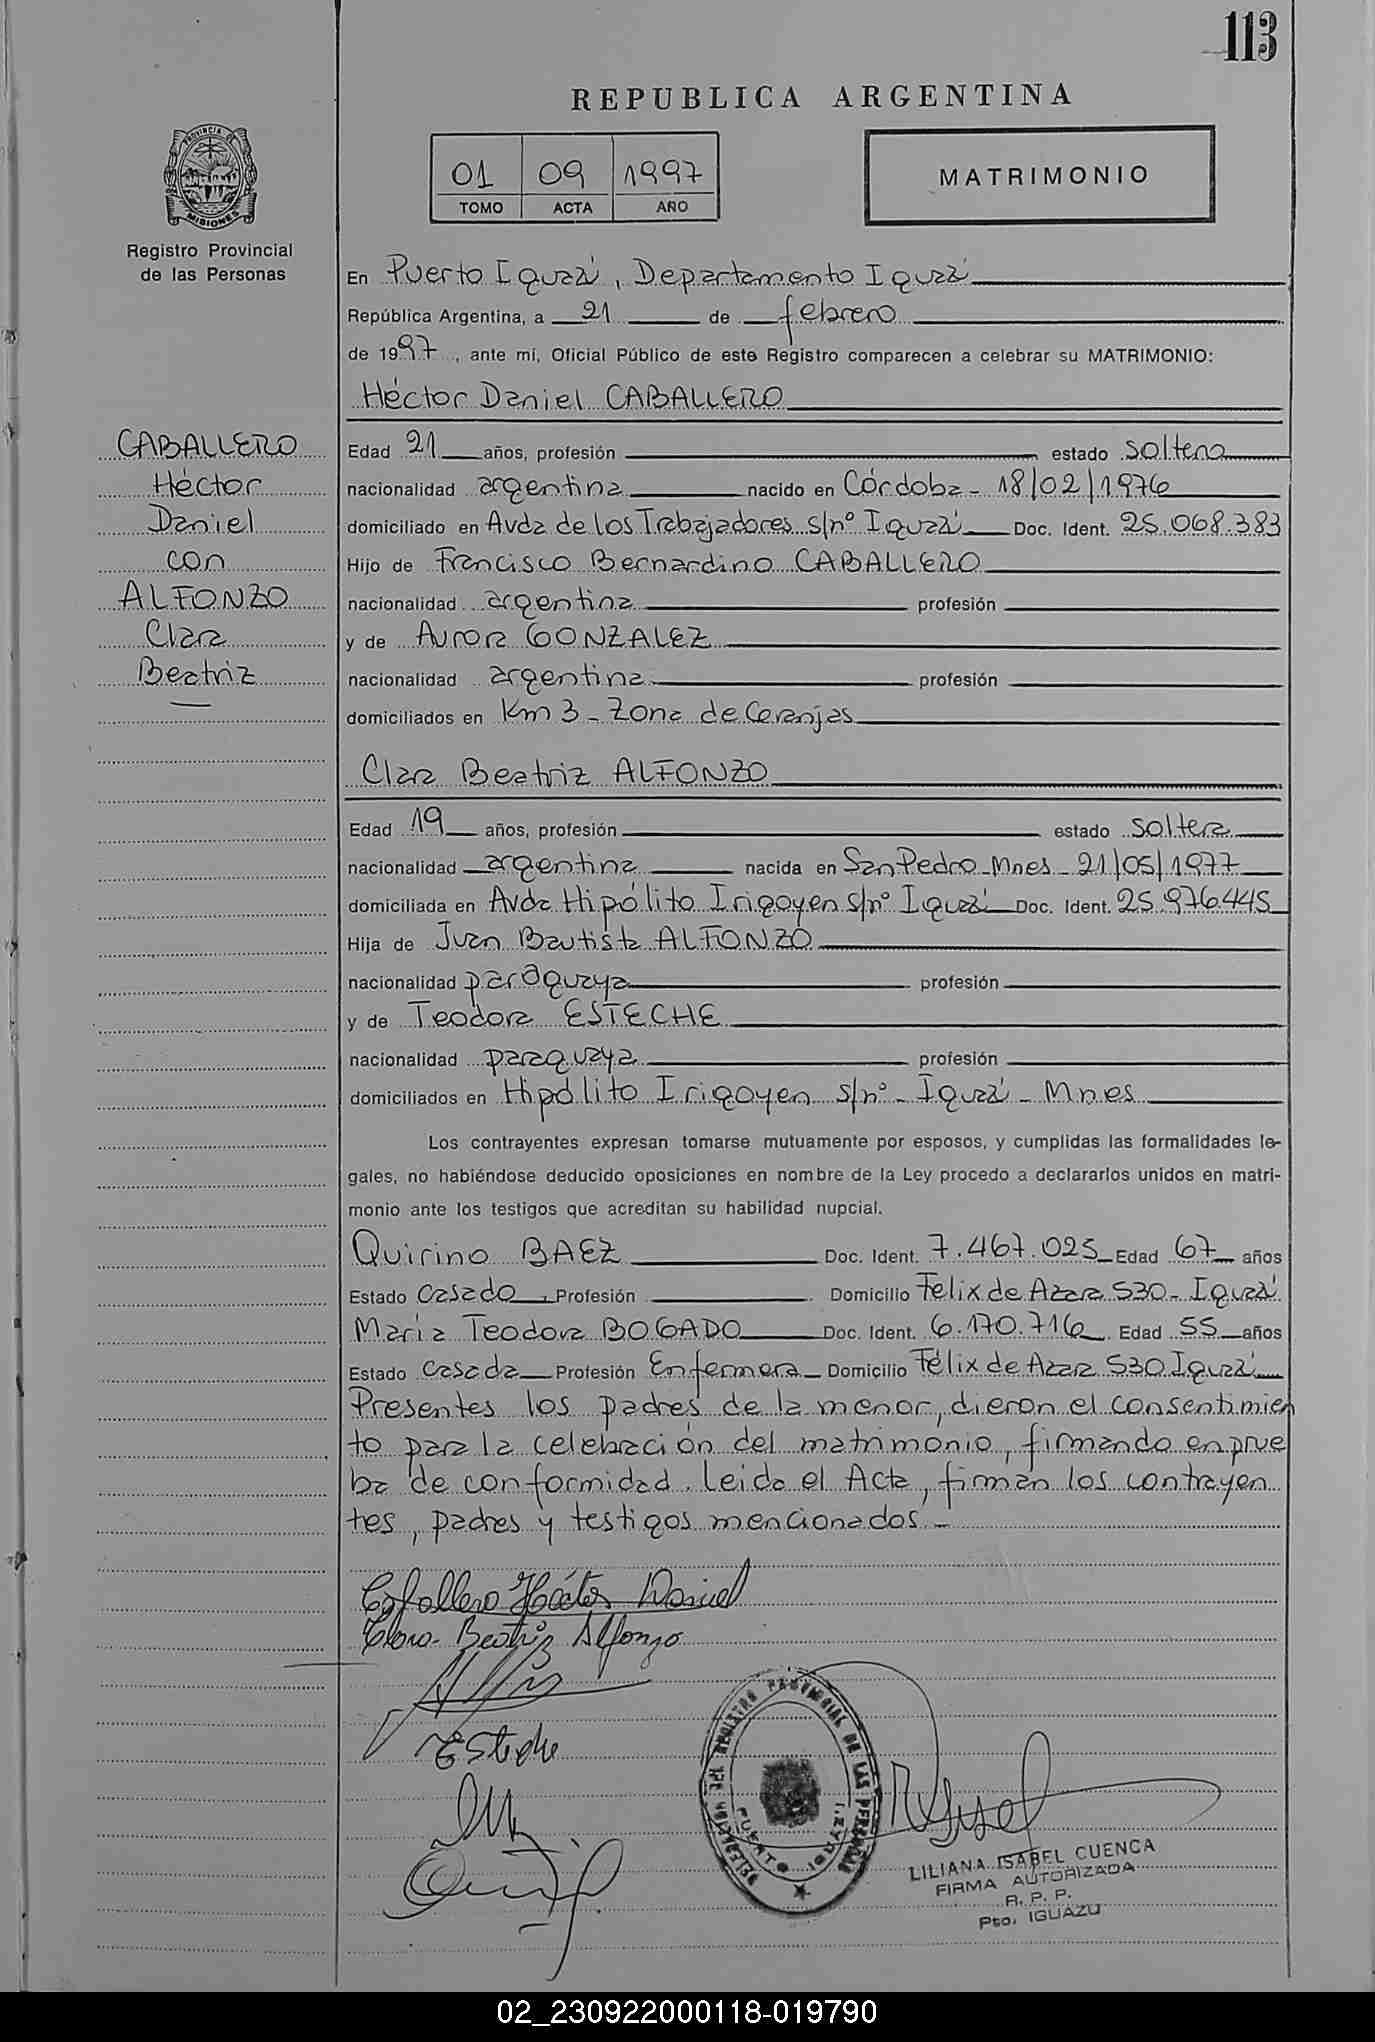 113
REPUBLICA ARGENTINA
PROVINCIA DE
MISIONES
Registro Provincial
de las Personas
01 09 1997
TOMO ACTA AÑO
MATRIMONIO
En Puerto Iguazú, Departamento Iguazú
República Argentina, a 21 de febrero
de 1997, ante mí, Oficial Público de este Registro comparecen a celebrar su MATRIMONIO:
Héctor Daniel CABALLERO
CABALLERO
Héctor
Daniel
con
ALFONZO
Clara
Beatriz
Edad 21 años, profesión estado soltero
nacionalidad argentina nacido en Córdoba - 18/02/1976
domiciliado en Avda de los Trabajadores s/nº Iguazú Doc. Ident. 25.068.383
Hijo de Francisco Bernardino CABALLERO
nacionalidad argentina profesión
y de Aurora GONZALEZ
nacionalidad argentina profesión
domiciliados en Km 3 - Zona de Granjas
Clara Beatriz ALFONZO
Edad 19 años, profesión estado soltera
nacionalidad argentina nacida en San Pedro - Mnes - 21/05/1977
domiciliada en Avda Hipólito Irigoyen s/nº Iguazú Doc. Ident. 25.976.445
Hija de Juan Bautista ALFONZO
nacionalidad paraguaya profesión
y de Teodora ESTECHE
nacionalidad paraguaya profesión
domiciliados en Hipólito Irigoyen s/nº - Iguazú - Mnes
Los contrayentes expresan tomarse mutuamente por esposos, y cumplidas las formalidades le-
gales, no habiéndose deducido oposiciones en nombre de la Ley procedo a declararlos unidos en matri-
monio ante los testigos que acreditan su habilidad nupcial.
Quirino BAEZ Doc. Ident. 7.467.025 Edad 67 años
Estado casado, Profesión Domicilio Felix de Azara 530 - Iguazú
María Teodora BOGADO Doc. Ident. 6.170.716 Edad 55 años
Estado casada Profesión Enfermera Domicilio Félix de Azara 530 Iguazú
Presentes los padres de la menor, dieron el consentimien
to para la celebración del matrimonio, firmando en prue
ba de conformidad. Leida el Acta, firman los contrayen
tes, padres y testigos mencionados -
Caballero Héctor Daniel
Clara Beatriz Alfonzo
Esteche
REGISTRO PROVINCIAL DE LAS PERSONAS
PUERTO IGUAZU
LILIANA ISABEL CUENCA
FIRMA AUTORIZADA
R. P. P.
Pto. IGUAZU
02_230922000118-019790